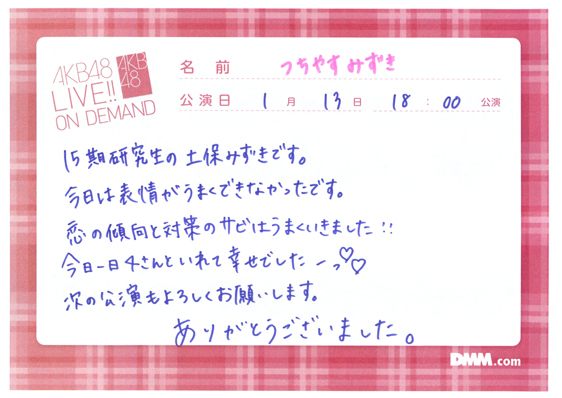 AKB48
LIVE!!
ON DEMAND
AKB
48
名 前 つちやすみずき
公演日 1 月 13 日 18 : 00 公演
15期研究生の土保みずきです。
今日は表情がうまくできなかったです。
恋の傾向と対策のサビはうまくいきました!!
今日一日4さんといれて幸せでしたーっ♡♡
次の公演もよろしくお願いします。
ありがとうございました。
DMM.com